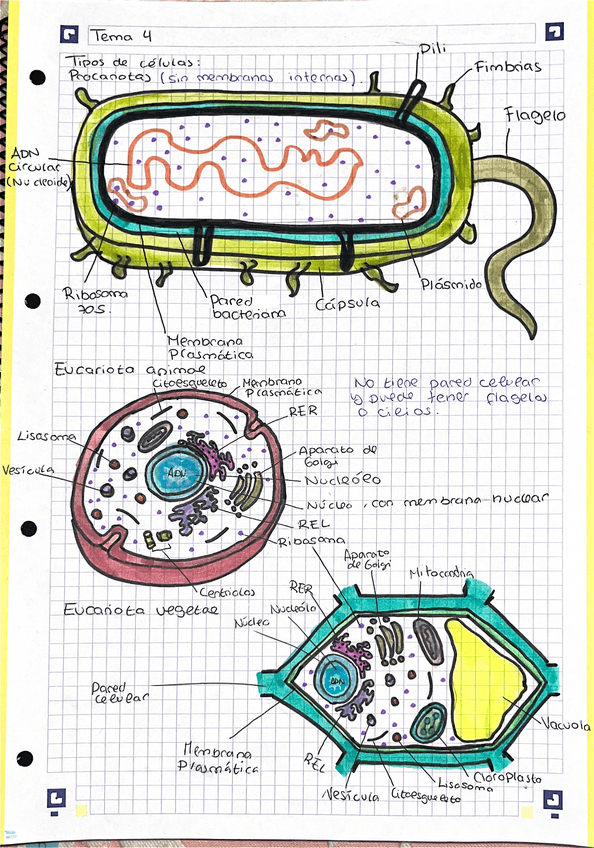 Tema 4
Tipos de células:
Procariotas (sin membranas internas).
Pili
Fimbrias
Flagelo
ADN
circular
(Nucleoide)
Ribosoma
70S.
Pared
bacteriana
Cápsula
Plásmido
Membrana
Plasmática
Eucariota animal
Citoesqueleto
Membrana
Plasmática
RER
No tiene pared celular
y puede tener flagelos
o cilios.
Lisosoma
Vesícula
ADN
Aparato de
Golgi
Nucleólo
Núcleo, con membrana nuclear
REL
Ribosoma
Centriolos
Eucariota vegetal
Aparato
de Golgi
Mitocondria
RER
Nucleólo
Núcleo
ADN
Pared
celular
Membrana
Plasmática
REL
Vesícula
Citoesqueleto
Lisosoma
Cloroplasto
Vacuola